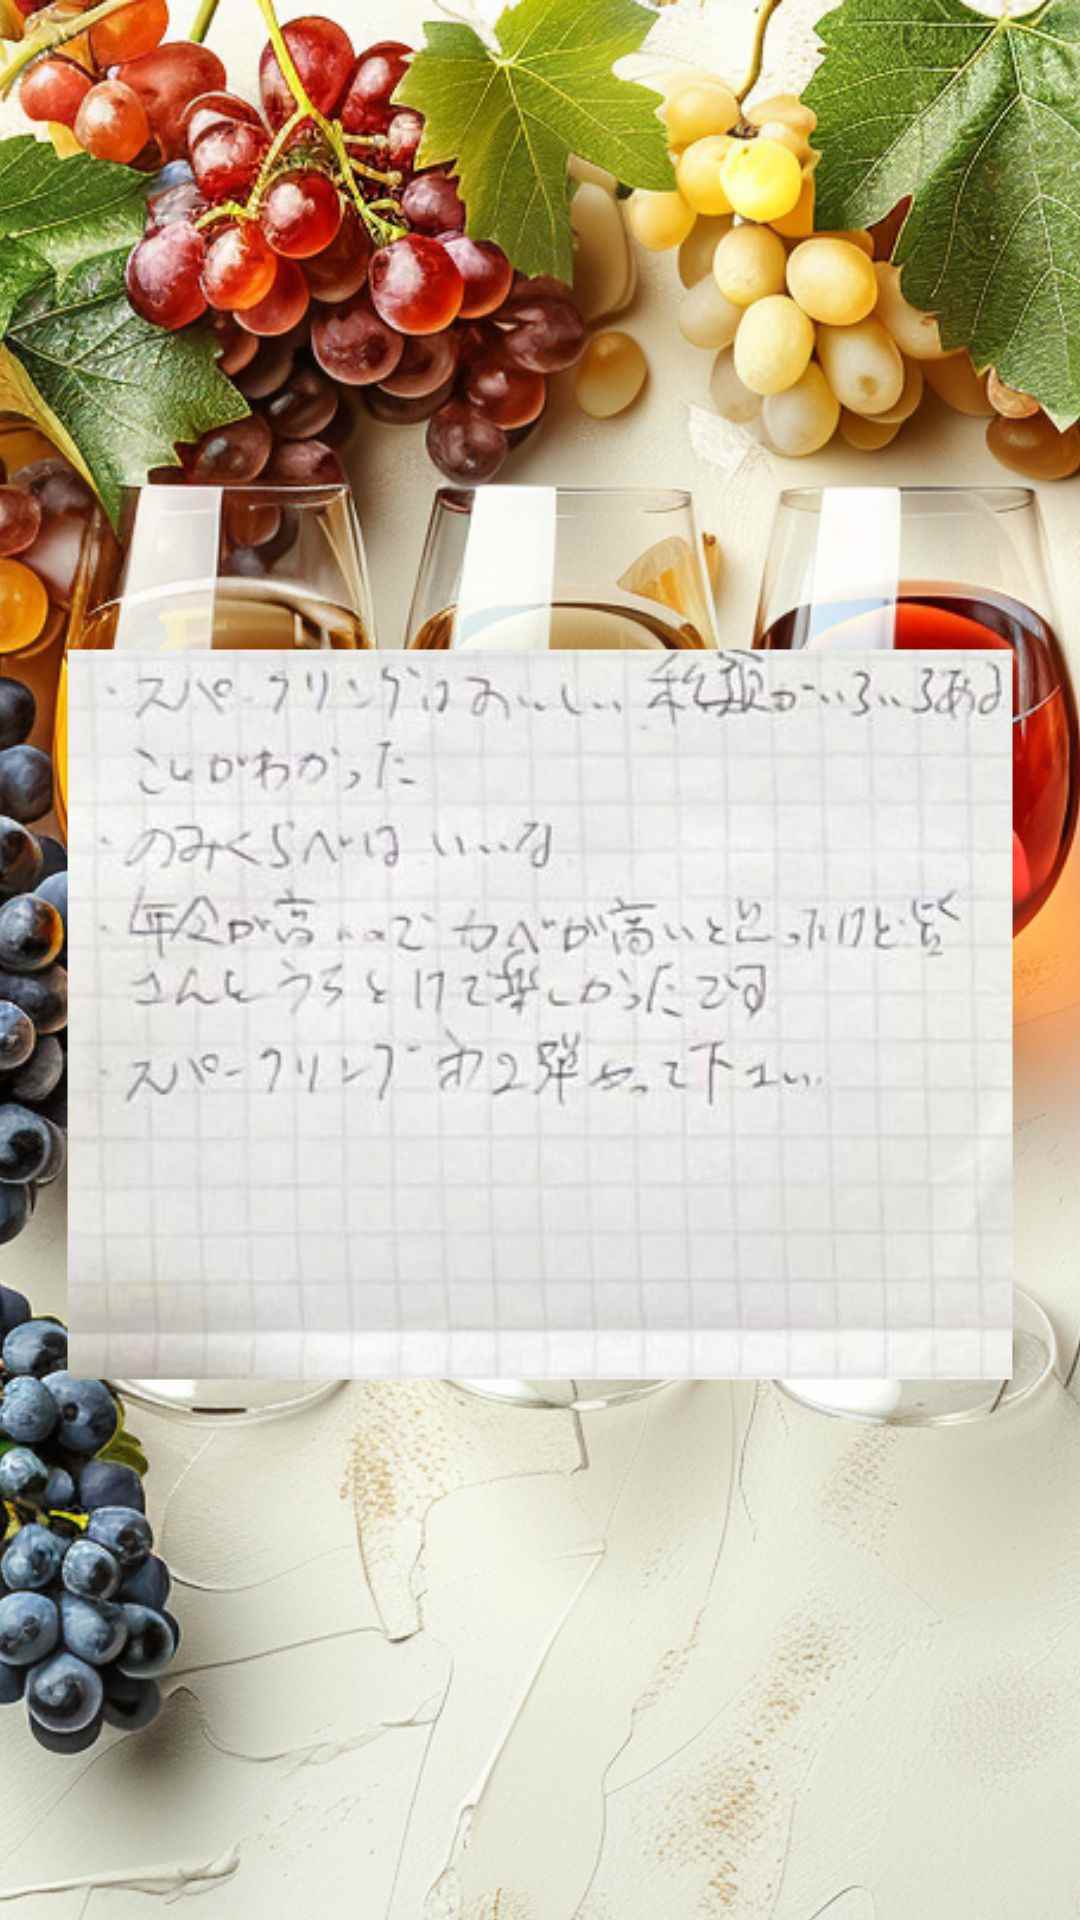 ・スパークリングはおいしい 種類がいろいろある
ことがわかった
・のみくらべは いいな
・年令が高いので カベが高いと思ったけど皆
さんと うちとけて楽しかったです
・スパークリング 第2弾やって下さい